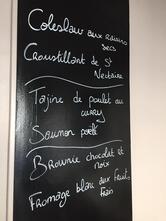 Coleslaw aux raisins
secs
Croustillant de St
Nectaire
Tajine de poulet au
curry
Saumon poêlé
Brownie chocolat et
noix
Fromage blanc aux fruits
frais